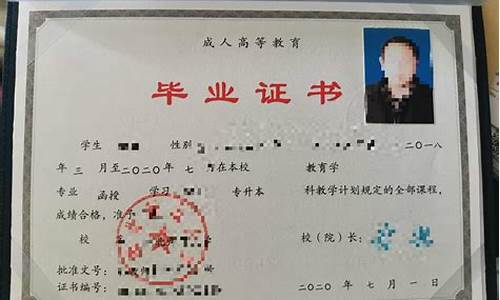 成人高等教育
毕业证书
学生 性别 二〇一八
年 三 月至二〇二〇年 七 在本校 教育学
专业 函授 学习 专升本 科教学计划规定的全部课程，
成绩合格，准予
校 校（院）长：
批准文号：
证书编号： 二〇二〇 年 七 月 一 日